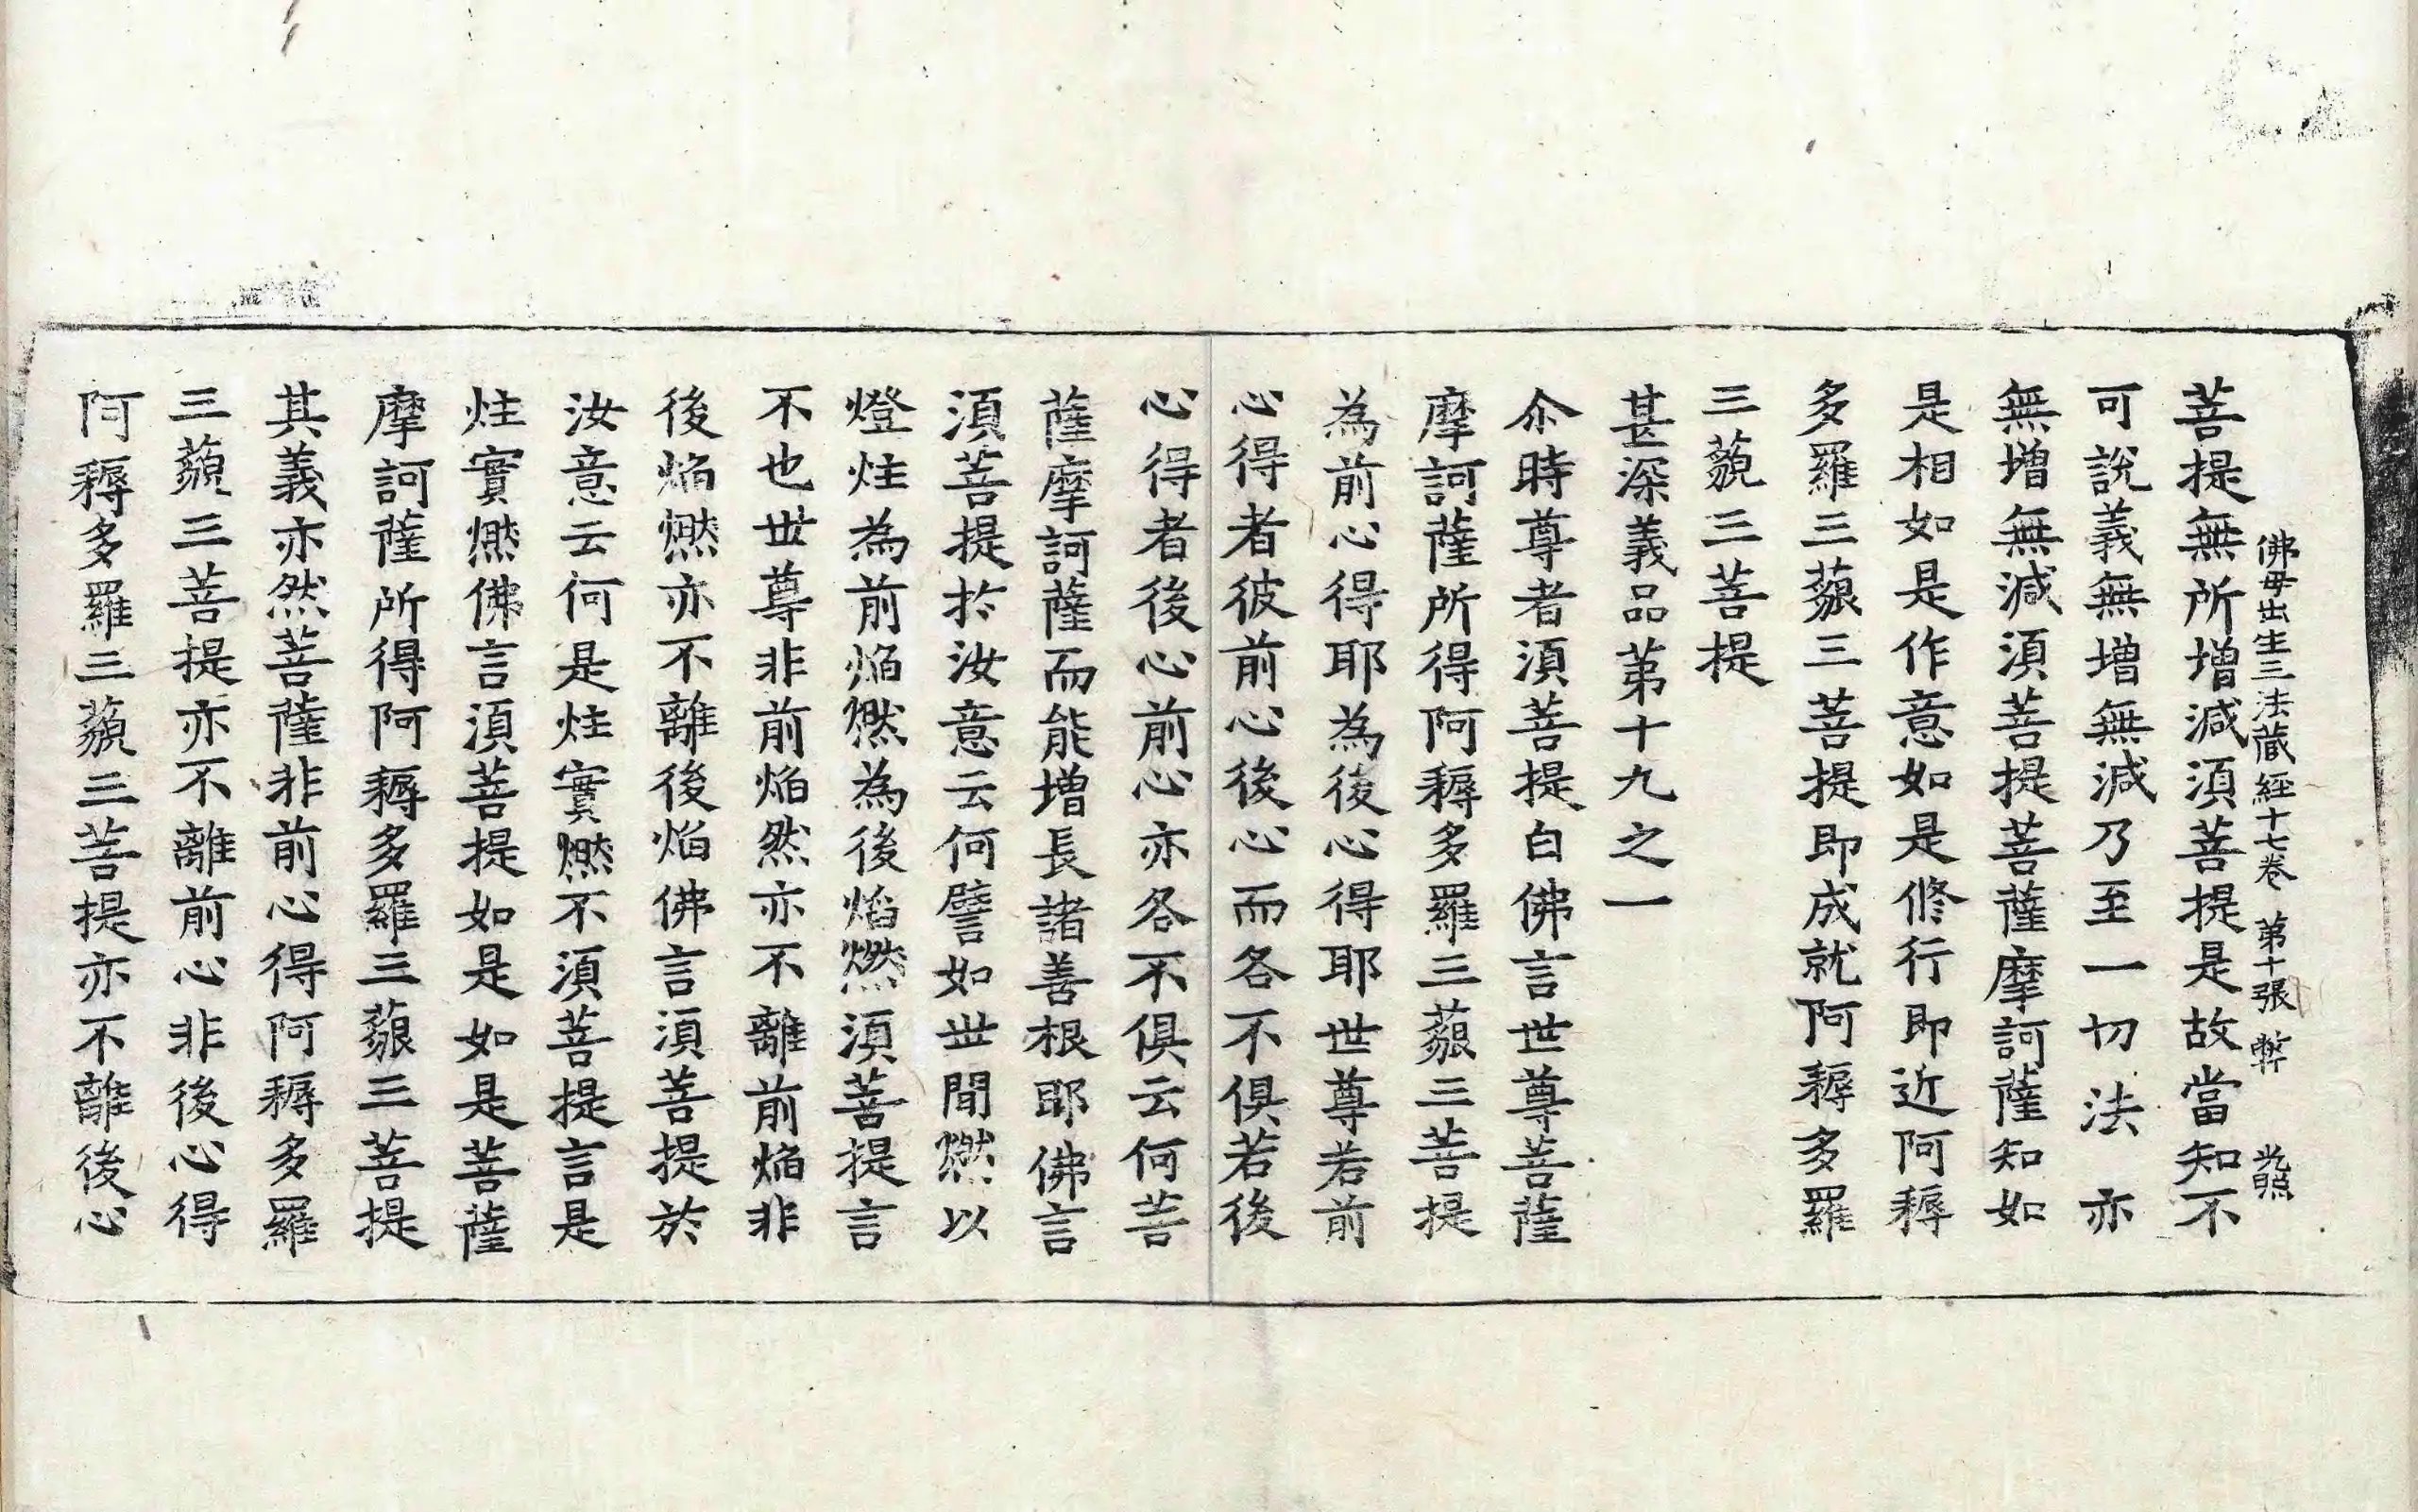 佛母出生三法藏經十七卷 第十張 弊 光照
菩提無所增減須菩提是故當知不
可說義無增無減乃至一切法亦
無增無減須菩提菩薩摩訶薩知如
是相如是作意如是修行即近阿耨
多羅三藐三菩提即成就阿耨多羅
三藐三菩提
甚深義品第十九之一
尒時尊者須菩提白佛言世尊菩薩
摩訶薩所得阿耨多羅三藐三菩提
為前心得耶為後心得耶世尊若前
心得者彼前心後心而各不俱若後
心得者後心前心亦各不俱云何菩
薩摩訶薩而能增長諸善根耶佛言
須菩提於汝意云何譬如世間燃以
燈炷為前焰燃為後焰燃須菩提言
不也世尊非前焰然亦不離前焰非
後焰燃亦不離後焰佛言須菩提於
汝意云何是炷實燃不須菩提言是
炷實燃佛言須菩提如是如是菩薩
摩訶薩所得阿耨多羅三藐三菩提
其義亦然菩薩非前心得阿耨多羅
三藐三菩提亦不離前心非後心得
阿耨多羅三藐三菩提亦不離後心